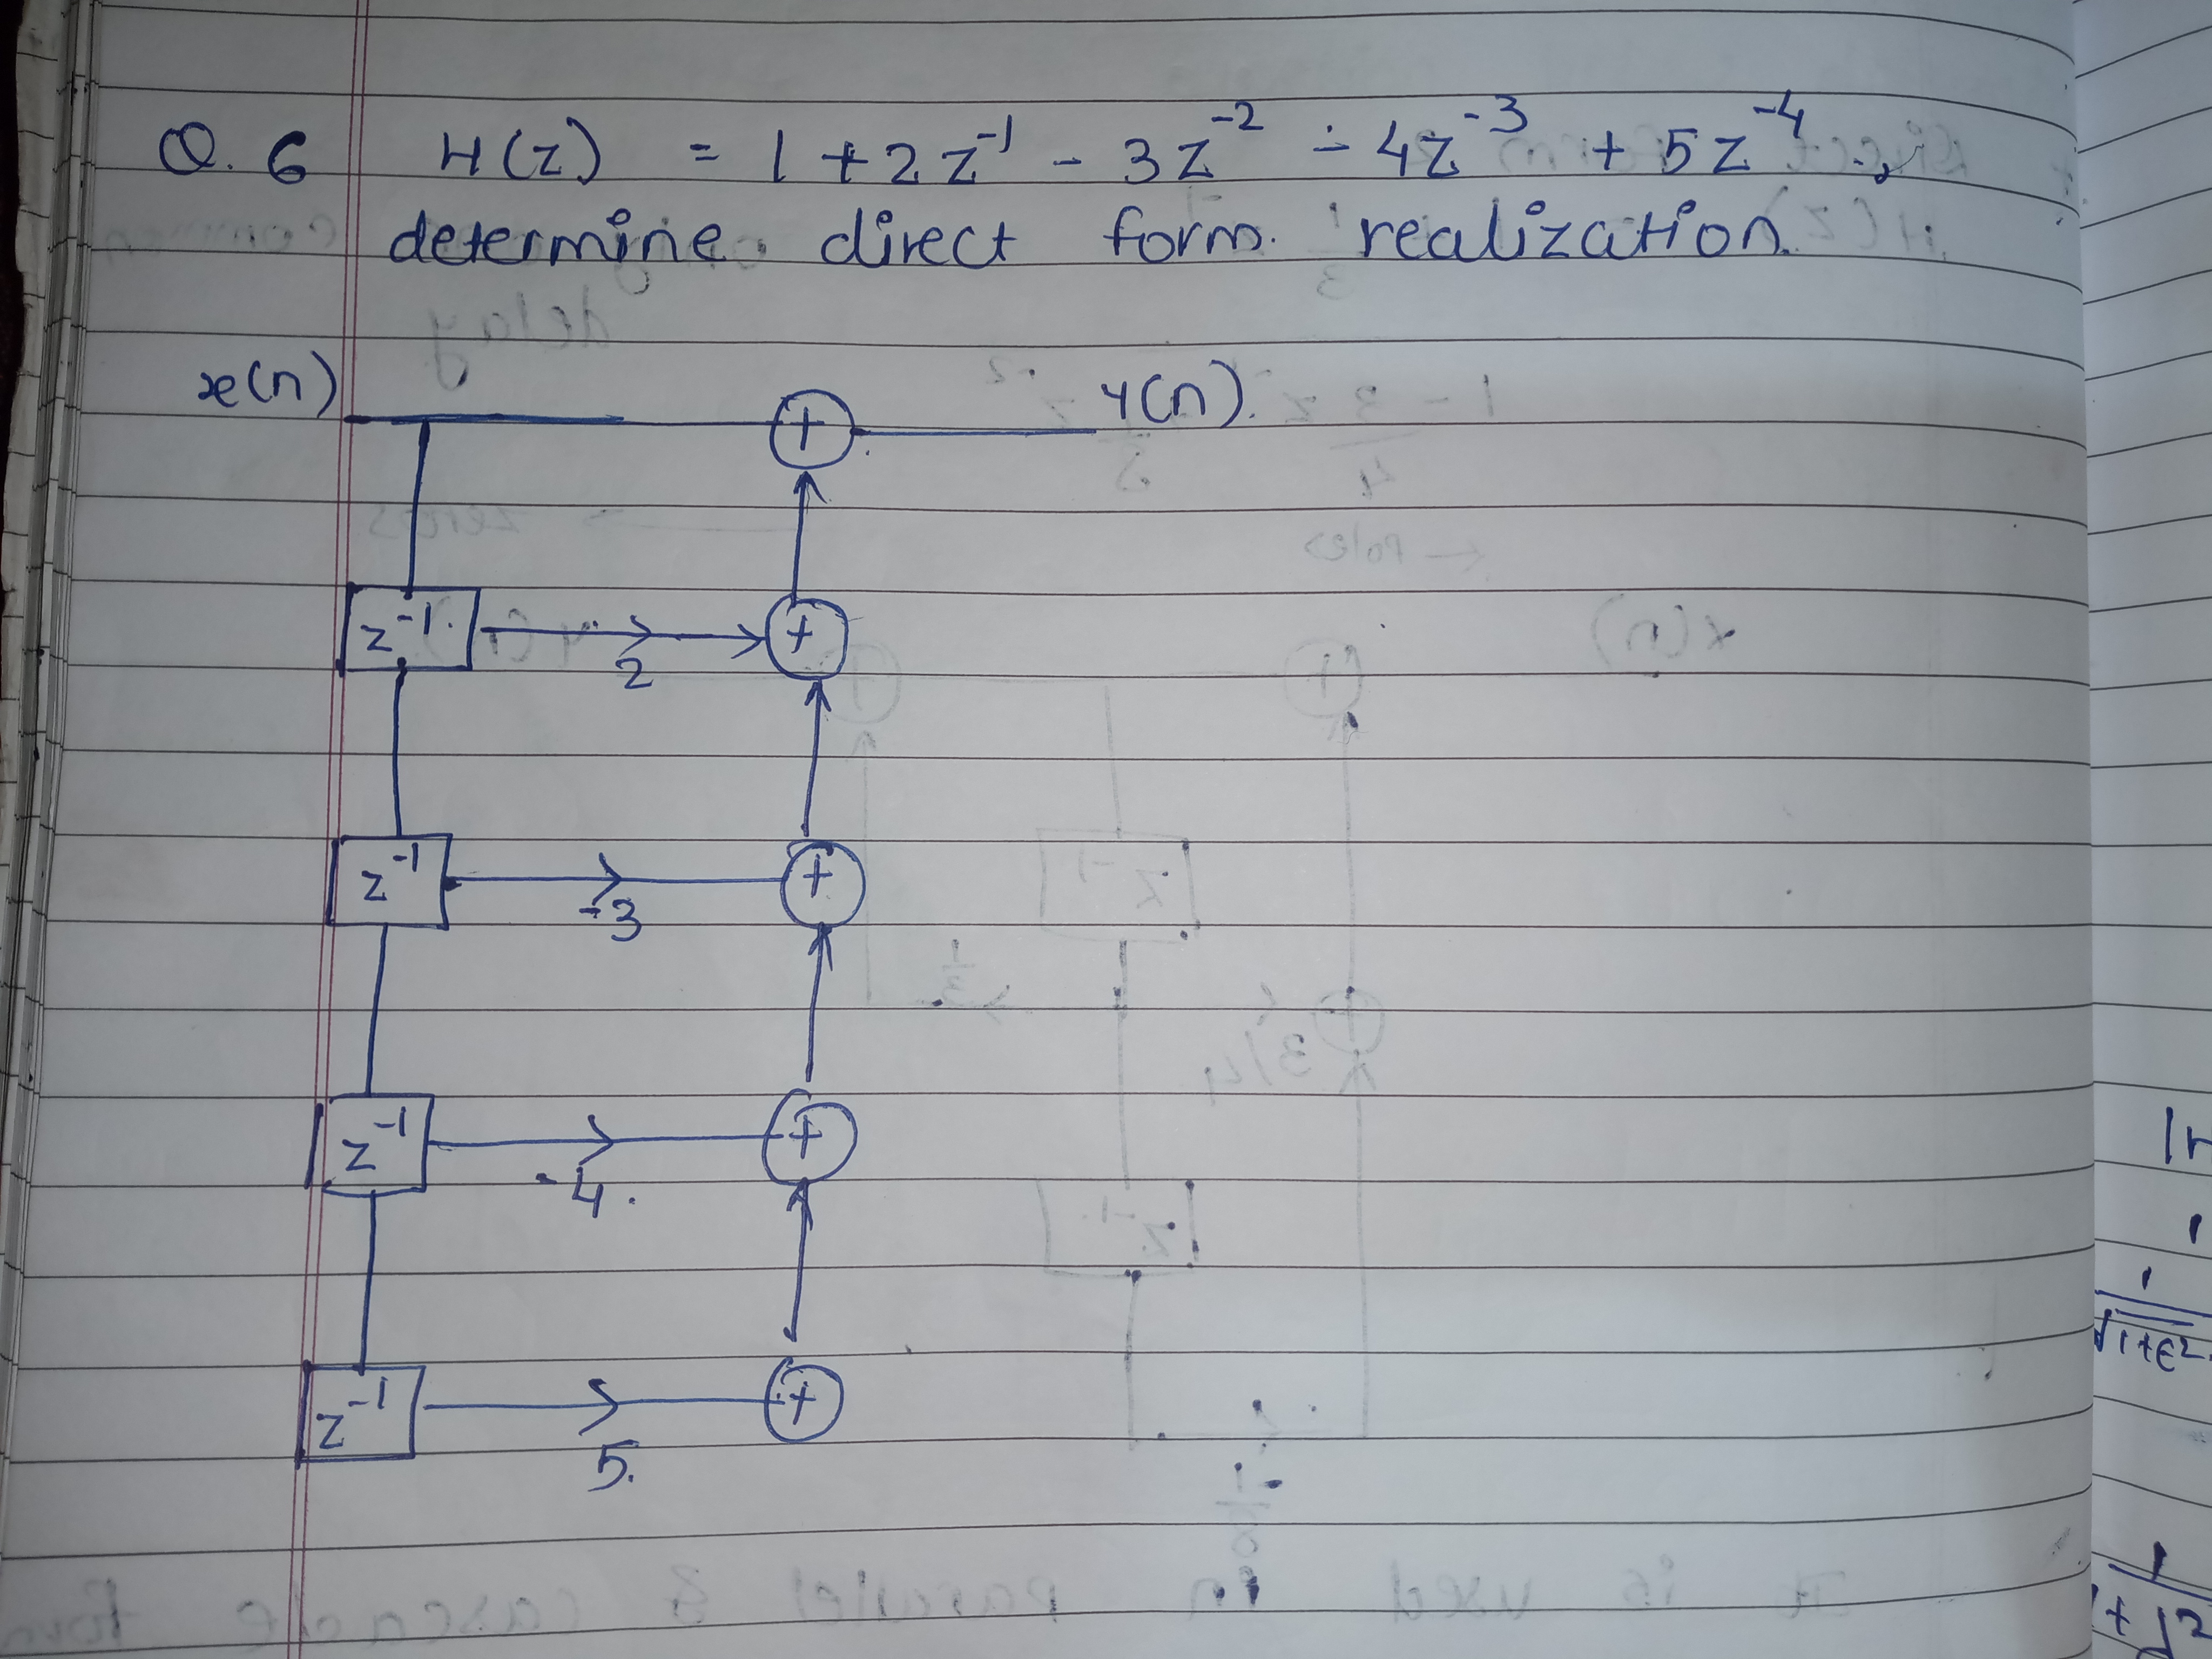 Q. 6 H(z) = 1 + 2z⁻¹ - 3z⁻² - 4z⁻³ + 5z⁻⁴,
determine direct form. realization.
x(n) + y(n).
z⁻¹ 2 +
z⁻¹ -3 +
z⁻¹ -4. +
z⁻¹ 5. +
1
1
√1+ε²
1